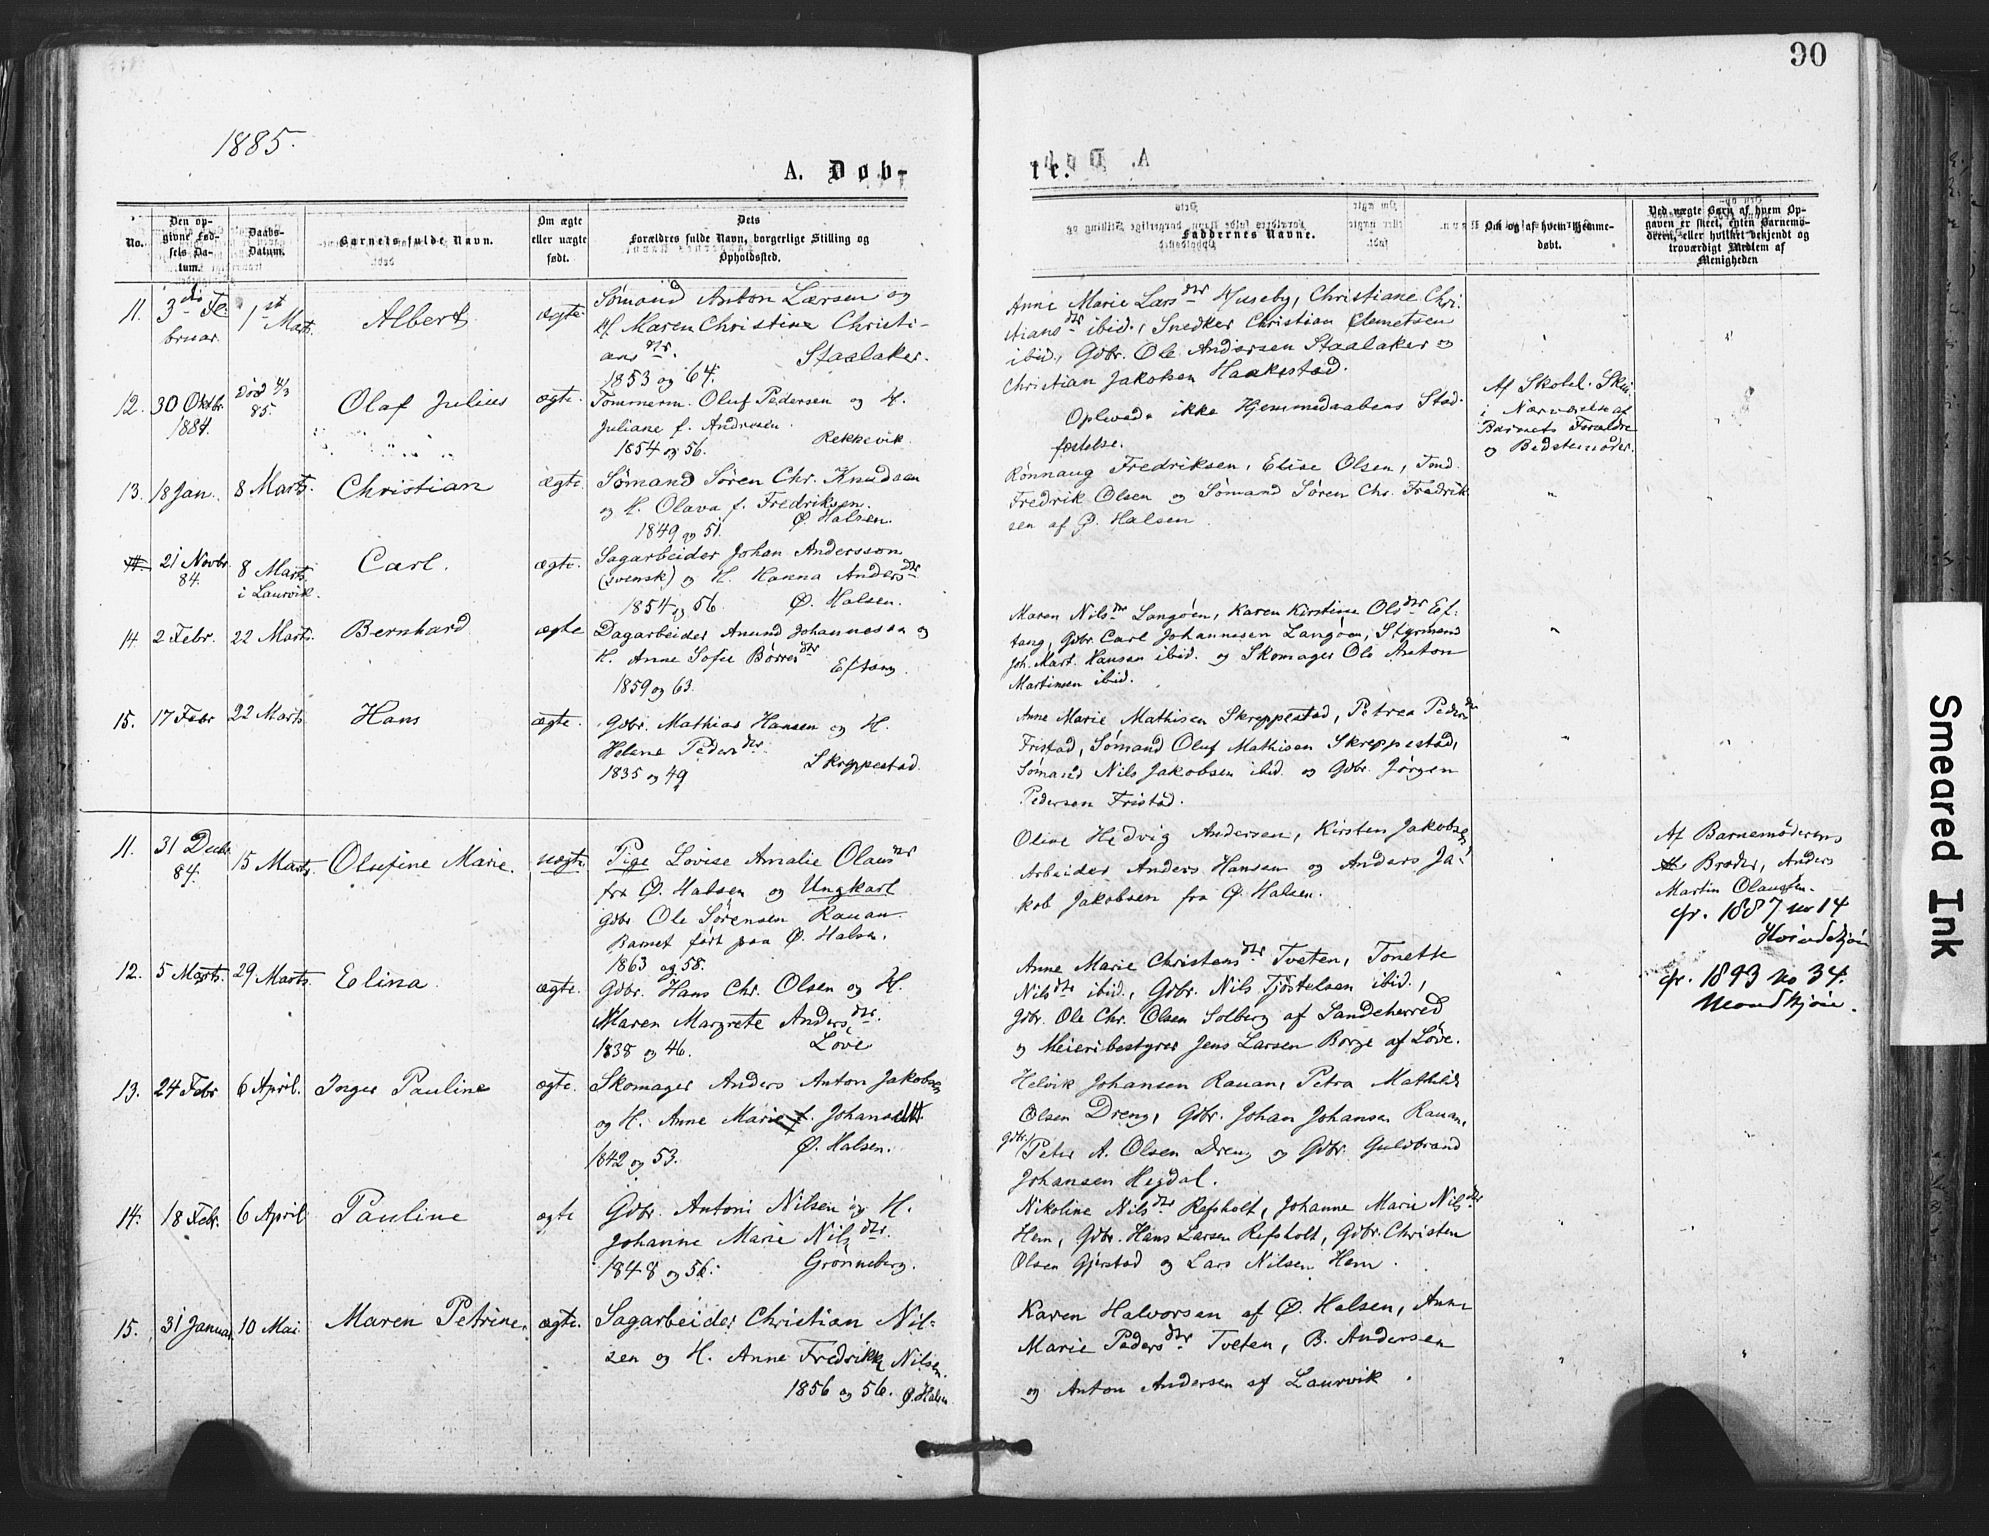 90
1885.
A. Døb-
te.
No.
Den op-
givne Fød-
sels Da-
tum.
Daabs-
Datum.
Barnets fulde Navn.
Om ægte
eller uægte
født.
Dets
Forældres fulde Navn, borgerlige Stilling og
Opholdssted.
Faddernes Navne.
Om og af hvem hjemme-
døbt.
Ved uægte Børn af hvem Op-
gaven er skeet, enten Barnemo-
deren, eller hvilket bekjendt og
troværdigt Medlem af
Menigheden
11.
3die Fe-
bruar.
1st Marts.
Albert
ægte
Sømand Anton Larsen og
H. Maren Christine Christi-
ans dtr. Staalaker.
1853 og 64.
Anne Marie Lars dtr Huseby, Christiane Chri-
stians dtr ibid., Snedker Christian Clemetsen
ibid., Gdbr. Ole Andersen Staalaker og
Christian Jakobsen Haakestad.
12.
30 Oktbr.
1884.
Død 4/3
85.
Olaf Julius
ægte.
Tømmerm. Oluf Pedersen og H.
Juliane f. Andresen.
1854 og 56. Rekkevik
Oplevede ikke Hjemmedaabens Stad-
fæstelse.
Af Skolel.
i Nærværelse af
Barnets Forældre
og Bedstemoder.
13.
18 Jan.
8 Marts.
Christian
ægte
Sømand Søren Chr. Knudsen
og H. Olava f. Fredriksen.
1849 og 51. Ø. Halsen.
Rønnaug Fredriksen, Elise Olsen, Tønd.
Fredrik Olsen og Sømand Søren Chr. Fredrik-
sen af Ø. Halsen.
21 Novbr.
84.
8 Marts
i Laurvik.
Carl.
ægte.
Sagarbeider Johan Andersson
(svensk) og H. Hanna Anders dtr
1854 og 56. Ø. Halsen.
14
2 Febr.
22 Marts.
Bernhard
ægte
Dagarbeider Anund Johannesen og
H. Anne Sofie Børres dtr
1859 og 63. Eftang.
Maren Nils dtr Langøen, Karen Kirstine Ols dtr Ef-
tang, Gdbr. Carl Johannesen Langøen, Styrmand
Joh. Mart. Hansen ibid. og Skomager Ole Anton
Martinsen ibid.
15.
17 Febr
22 Marts.
Hans
ægte.
Gdbr. Mathias Hansen og H.
Helene Peders dtr.
1835 og 49 Skreppestad.
Anne Marie Mathisen Skreppestad, Petrea Peders dtr
Fristad, Sømand Oluf Mathisen Skreppestad,
Sømand Nils Jakobsen ibid. og Gdbr. Jørgen
Pedersen Fristad.
11.
31 Decbr.
84.
15 Marts
Olufine Marie.
uægte
Pige Lovise Amalie Olaus dtr
fra Ø. Halsen og Ungkarl
Gdbr. Ole Sørensen Rauan.
Barnet født paa Ø. Halsen.
1863 og 58.
Oline Hedvig Andersen, Kirsten Jakobsen
Arbeider Anders Hansen og Anders Ja-
kob Jakobsen fra Ø. Halsen.
Af Barnemoderens
Broder, Anders
Martin Olaussen.
cfr. 1887 no 14
12.
5 Marts.
29 Marts.
Elina
ægte.
Gdbr. Hans Chr. Olsen og H.
Maren Margrete Anders dtr.
1838 og 46. Løve
Anne Marie Christens dtr Tveten, Tonette
Nils dtr ibid., Gdbr. Nils Tjøstelsen ibid.,
Gdbr. Ole Chr. Olsen Solberg af Sandeherred
og Meieribestyrer Jens Larsen Borge af Løve.
cfr. 1893 no 34.
13.
24 Febr
6 April.
Inger Pauline
ægte.
Skomager Anders Anton Jakobsen
og H. Anne Marie f. Johansen
1842 og 53. Ø. Halsen.
Helvik Johansen Rauan, Petra Mathilde
Olsen Dreng, Gdbr. Johan Johansen Rauan,
Gdbr. Peter A. Olsen Dreng og Gdbr. Guldbrand
Johansen Hegdal.
14.
18 Febr.
6 April
Pauline
ægte
Gdbr. Antoni Nilsen og H.
Johanne Marie Nils dtr.
1848 og 56. Grønneberg.
Nikoline Nils dtr. Refsholt, Johanne Marie Nils dtr
Hem, Gdbr. Hans Larsen Refsholt, Gdbr. Christen
Olsen Gjerstad og Lars Nilsen Hem.
15.
31 Januar
10 Mai
Maren Petrine.
ægte.
Sagarbeider Christian Nil-
sen og H. Anne Fredrikke Nilsen.
1856 og 56. Ø. Halsen
Karen Halvorsen af Ø. Halsen, Anne
Marie Peders dtr Tveten, B. Andersen
og Anton Andersen af Laurvik.
Smeared Ink